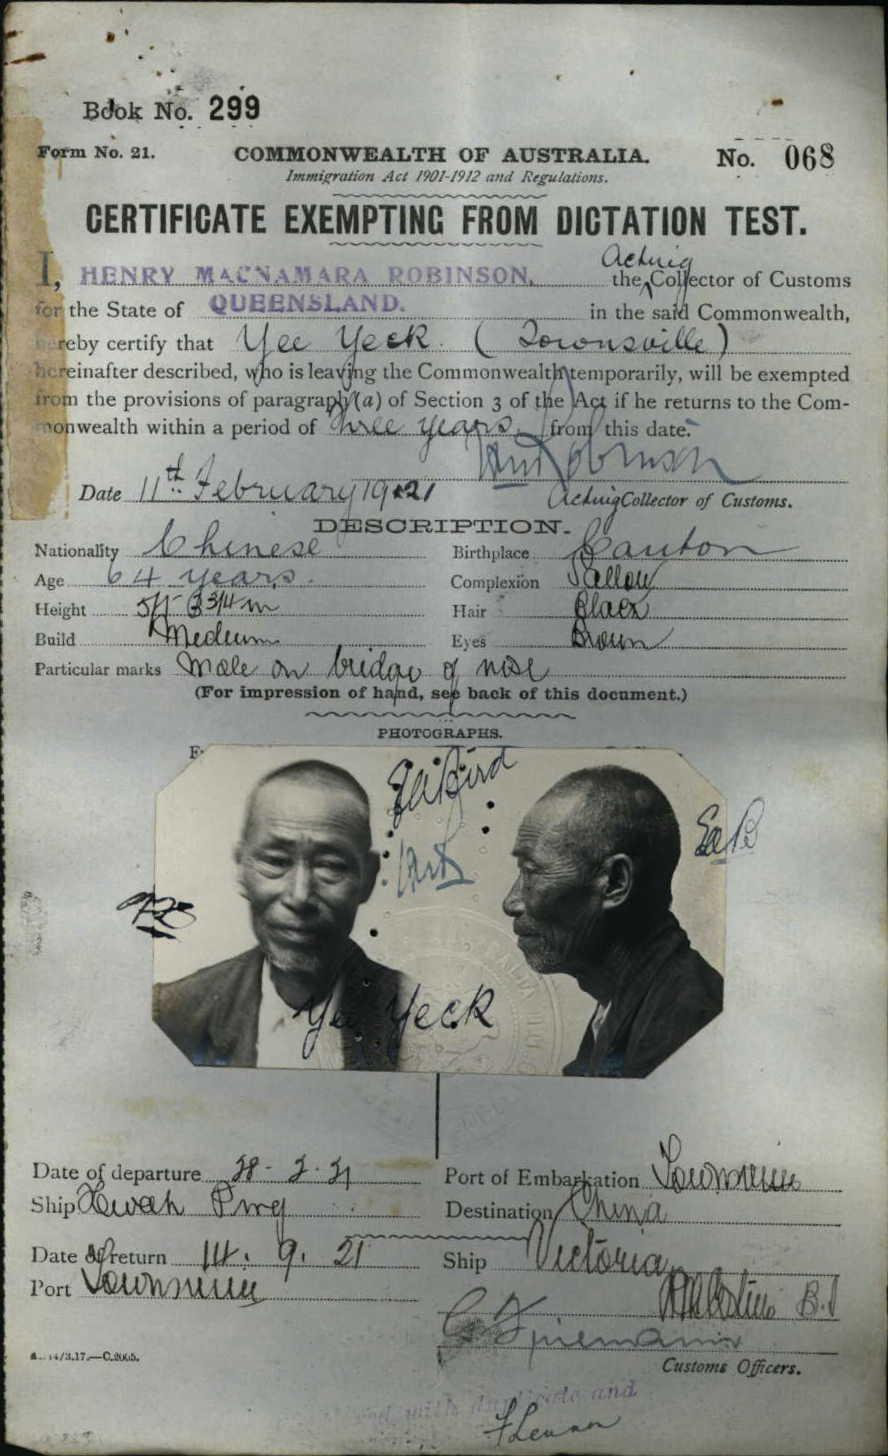 Book No. 299
Form No. 21. COMMONWEALTH OF AUSTRALIA. No. 068
Immigration Act 1901-1912 and Regulations.
CERTIFICATE EXEMPTING FROM DICTATION TEST.
I, HENRY MACNAMARA ROBINSON, the Acting Collector of Customs
for the State of QUEENSLAND. in the said Commonwealth,
hereby certify that Yee Yeck. (Townsville)
hereinafter described, who is leaving the Commonwealth temporarily, will be exempted
from the provisions of paragraph (a) of Section 3 of the Act if he returns to the Com-
monwealth within a period of three years from this date.
Date 11th February 1921 Acting Collector of Customs.
DESCRIPTION.
Nationality Chinese Birthplace Canton
Age 64 years. Complexion Sallow
Height Hair Black
Build Medium Eyes Brown
Particular marks Mole on bridge of nose
(For impression of hand, see back of this document.)
PHOTOGRAPHS.
Yee Yeck
Date of departure 28-2-21 Port of Embarkation Townsville
Ship Hwah Ping Destination China
Date of return 14. 9. 21 Ship Victoria
Port Townsville
Customs Officers.